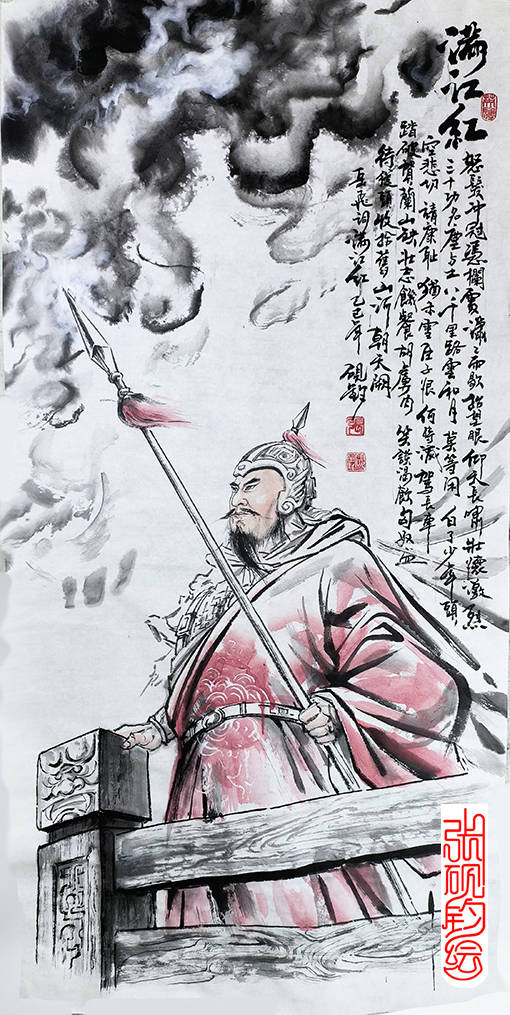 滿江紅
怒髮冲冠憑欄處瀟瀟雨歇抬望眼仰天長嘯壯懷激烈
三十功名塵与土八千里路雲和月莫等闲白了少年頭
空悲切靖康耻猶未雪臣子恨何時滅駕長車
踏破賀蘭山缺壯志饑餐胡虜肉笑談渴飲匈奴血
待從頭收拾舊山河朝天闕
岳飛詞滿江紅乙巳年硯鈞
张砚钧绘